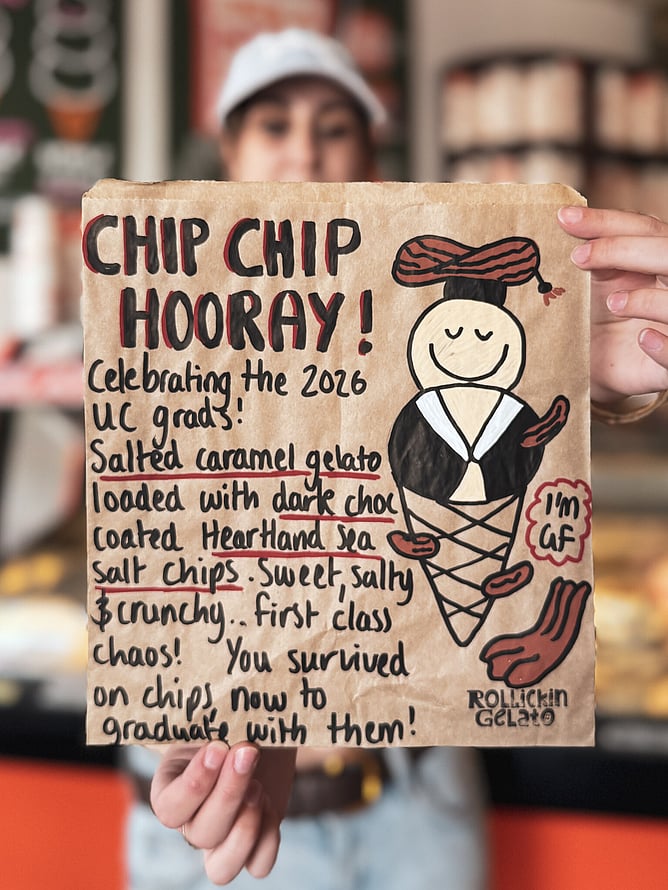 CHIP CHIP
HOORAY!
Celebrating the 2026
UC grads!
Salted caramel gelato
loaded with dark choc
coated Heartland Sea
Salt Chips. Sweet, salty
& crunchy.. first class
chaos! You survived
on chips, now to
graduate with them!
I'm
GF
ROLLICKIN
GELATO